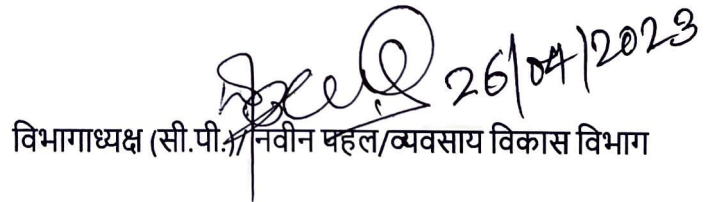 26/04/2023
विभागाध्यक्ष (सी.पी.)/ नवीन पहल/व्यवसाय विकास विभाग